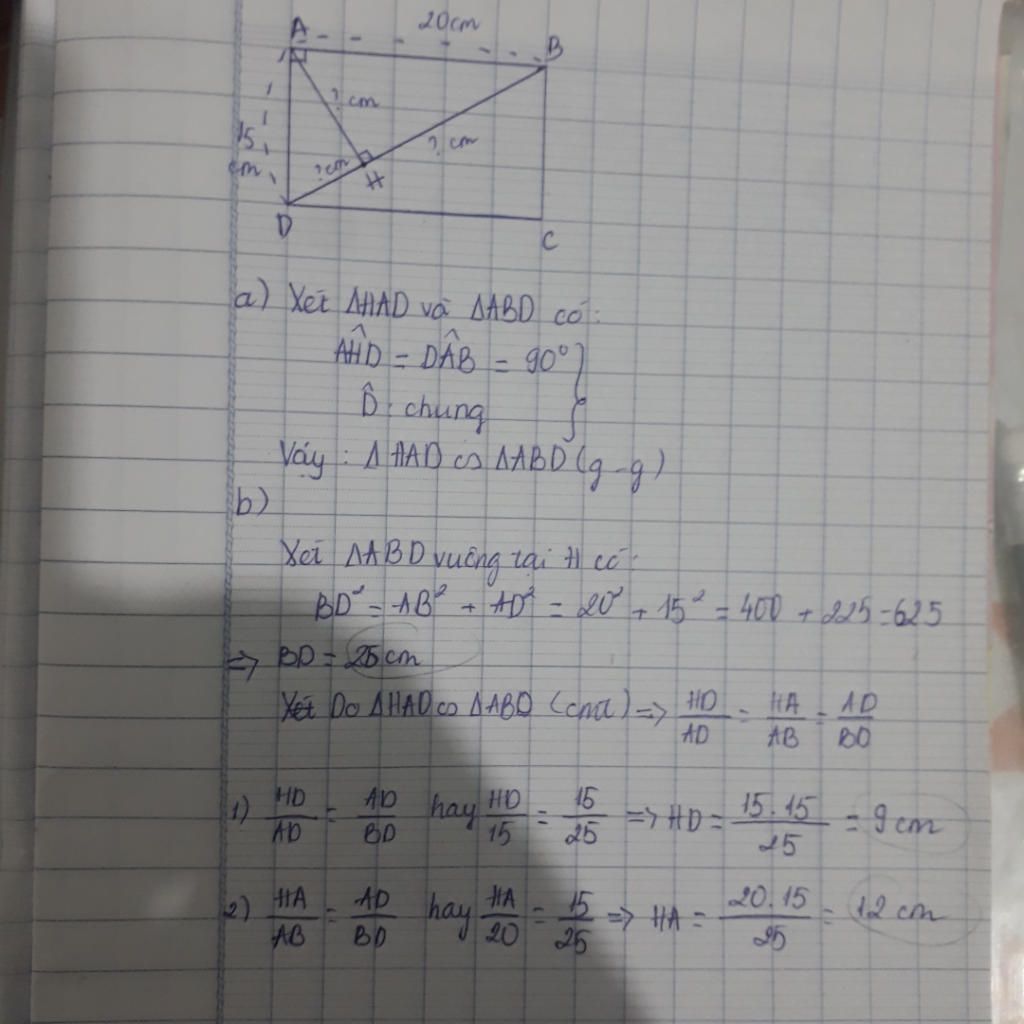 A 20cm B
? cm
15 cm
? cm
? cm
H
D
C
a) Xét ΔHAD và ΔABD có:
AĤD = DÂB = 90°
D̂ : chung
Vậy : ΔHAD ∽ ΔABD (g-g)
b)
Xét ΔABD vuông tại H có:
BD² = AB² + AD² = 20² + 15² = 400 + 225 = 625
=> BD = 25cm
Xét Do ΔHAD ∽ ΔABD (cmt) => HD/AD = HA/AB = AD/BD
1) HD/AD = AD/BD hay HD/15 = 15/25 => HD = 15.15/25 = 9 cm
2) HA/AB = AD/BD hay HA/20 = 15/25 => HA = 20.15/25 = 12 cm